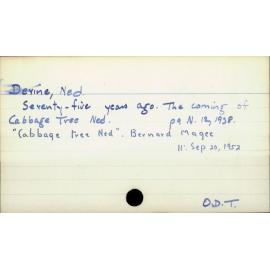 Devine, Ned
Seventy-five years ago. The coming of
Cabbage Tree Ned. pq N. 12, 1938.
"Cabbage Tree Ned". Bernard Magee
11: Sep 20, 1952
O.D.T.